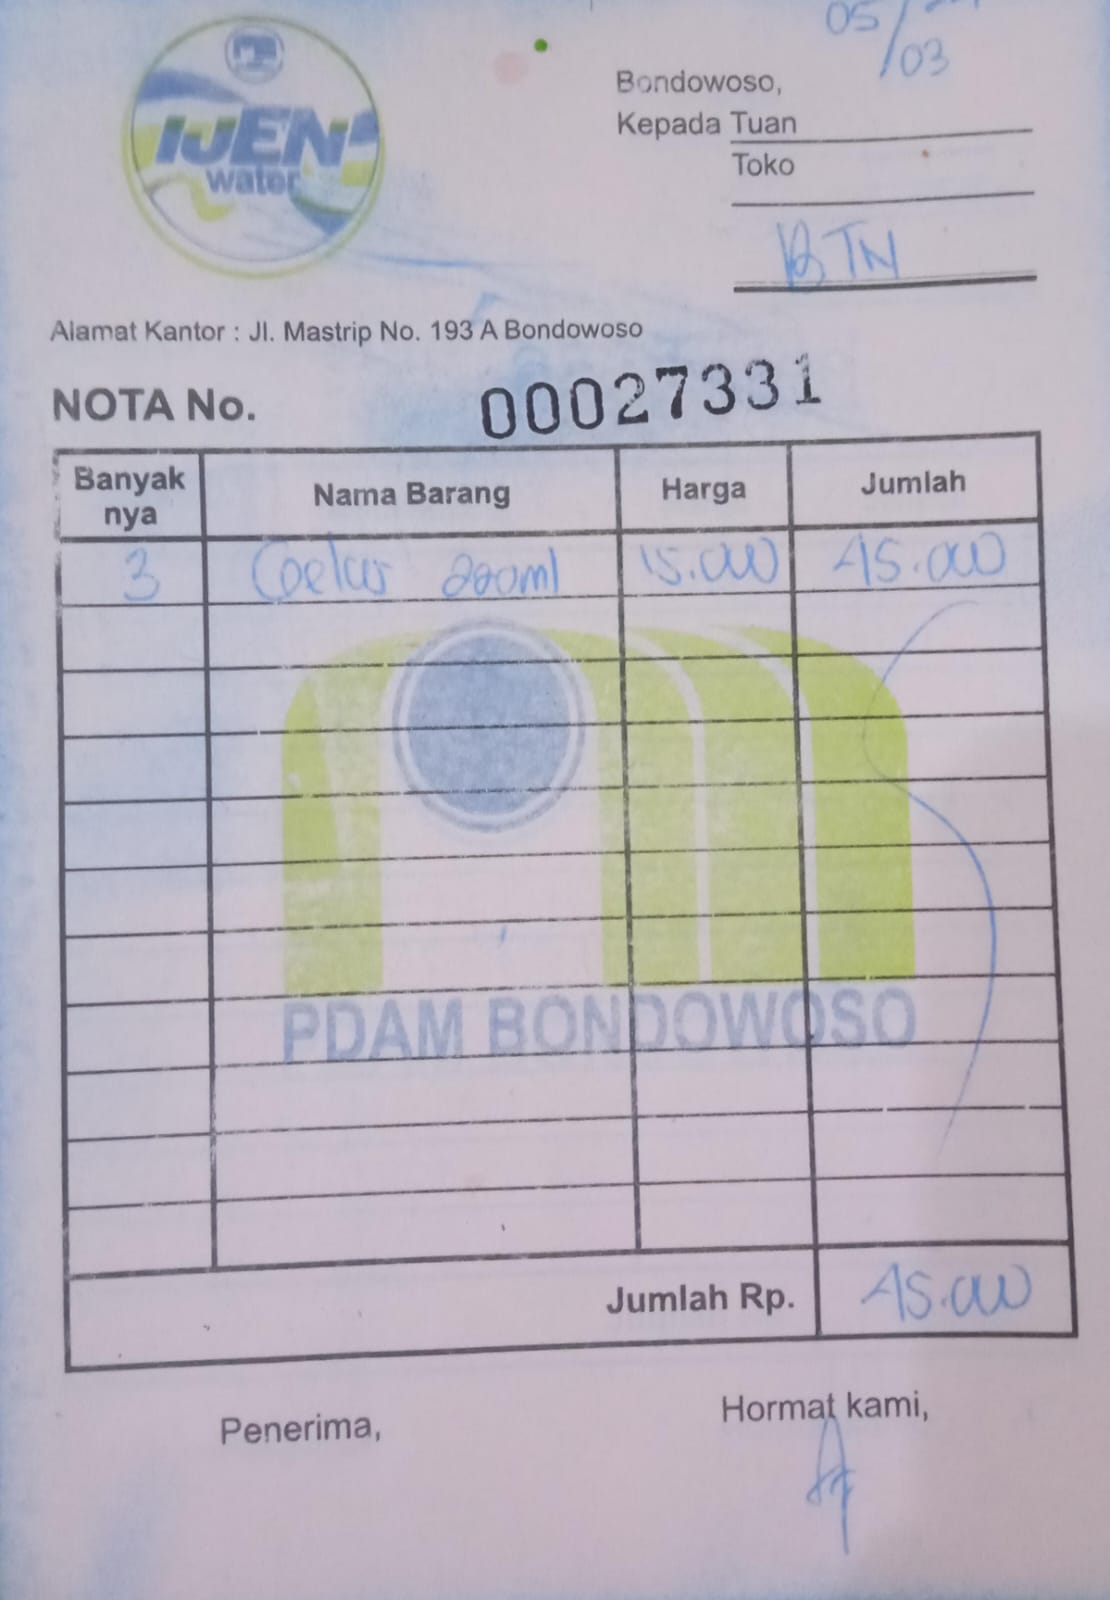 05/
03
IJEN
water
Bondowoso,
Kepada Tuan
Toko
BTN
Alamat Kantor : Jl. Mastrip No. 193 A Bondowoso
NOTA No. 00027331
Banyak nya Nama Barang Harga Jumlah
3 200ml 15.000 45.000
PDAM BONDOWOSO
Jumlah Rp. 45.000
Penerima, Hormat kami,